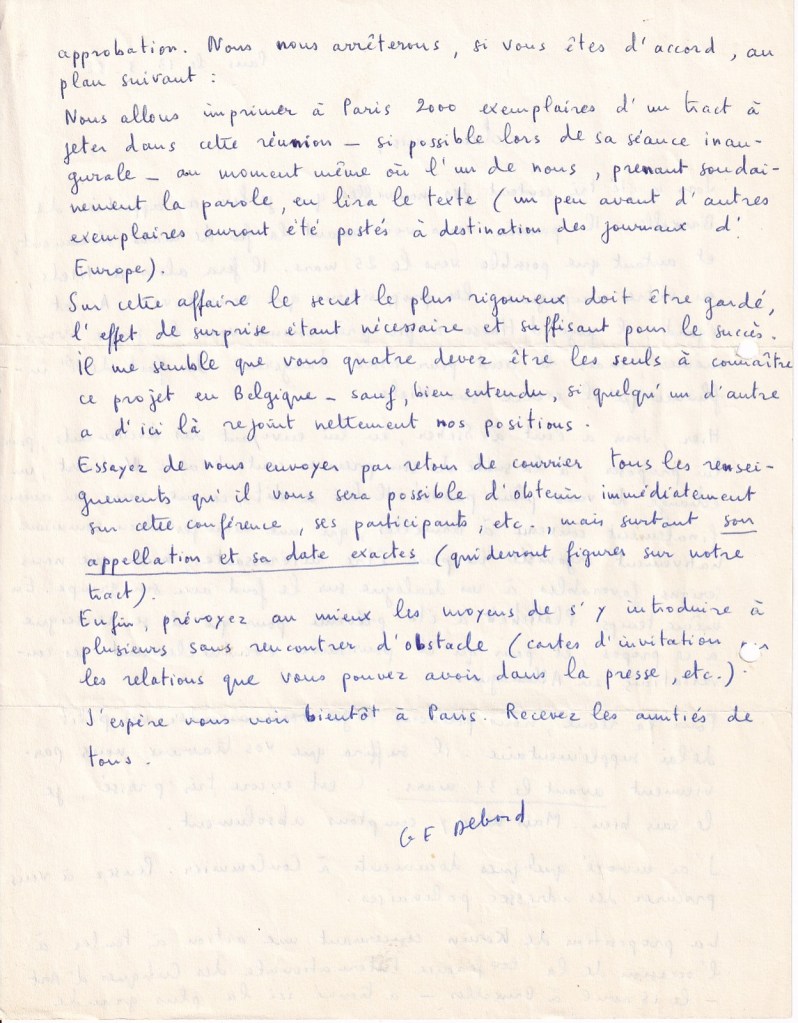 approbation. Nous nous arrêterons, si vous êtes d'accord, au
plan suivant :
Nous allons imprimer à Paris 2000 exemplaires d'un tract à
jeter dans cette réunion – si possible lors de sa séance inau-
gurale – au moment même où l'un de nous, prenant soudai-
nement la parole, en lira le texte (un peu avant d'autres
exemplaires auront été postés à destination des journaux d'
Europe).
Sur cette affaire le secret le plus rigoureux doit être gardé,
l'effet de surprise étant nécessaire et suffisant pour le succès.
Il me semble que vous quatre devez être les seuls à connaître
ce projet en Belgique – sauf, bien entendu, si quelqu'un d'autre
a d'ici là rejoint nettement nos positions.
Essayez de nous envoyer par retour de courrier tous les rensei-
gnements qu'il vous sera possible d'obtenir immédiatement
sur cette conférence, ses participants, etc., mais surtout son
appellation et sa date exactes (qui devront figurer sur notre
tract).
Enfin, prévoyez au mieux les moyens de s'y introduire à
plusieurs sans rencontrer d'obstacle (cartes d'invitation
les relations que vous pouvez avoir dans la presse, etc.).
J'espère vous voir bientôt à Paris. Recevez les amitiés de
tous.
G E Debord